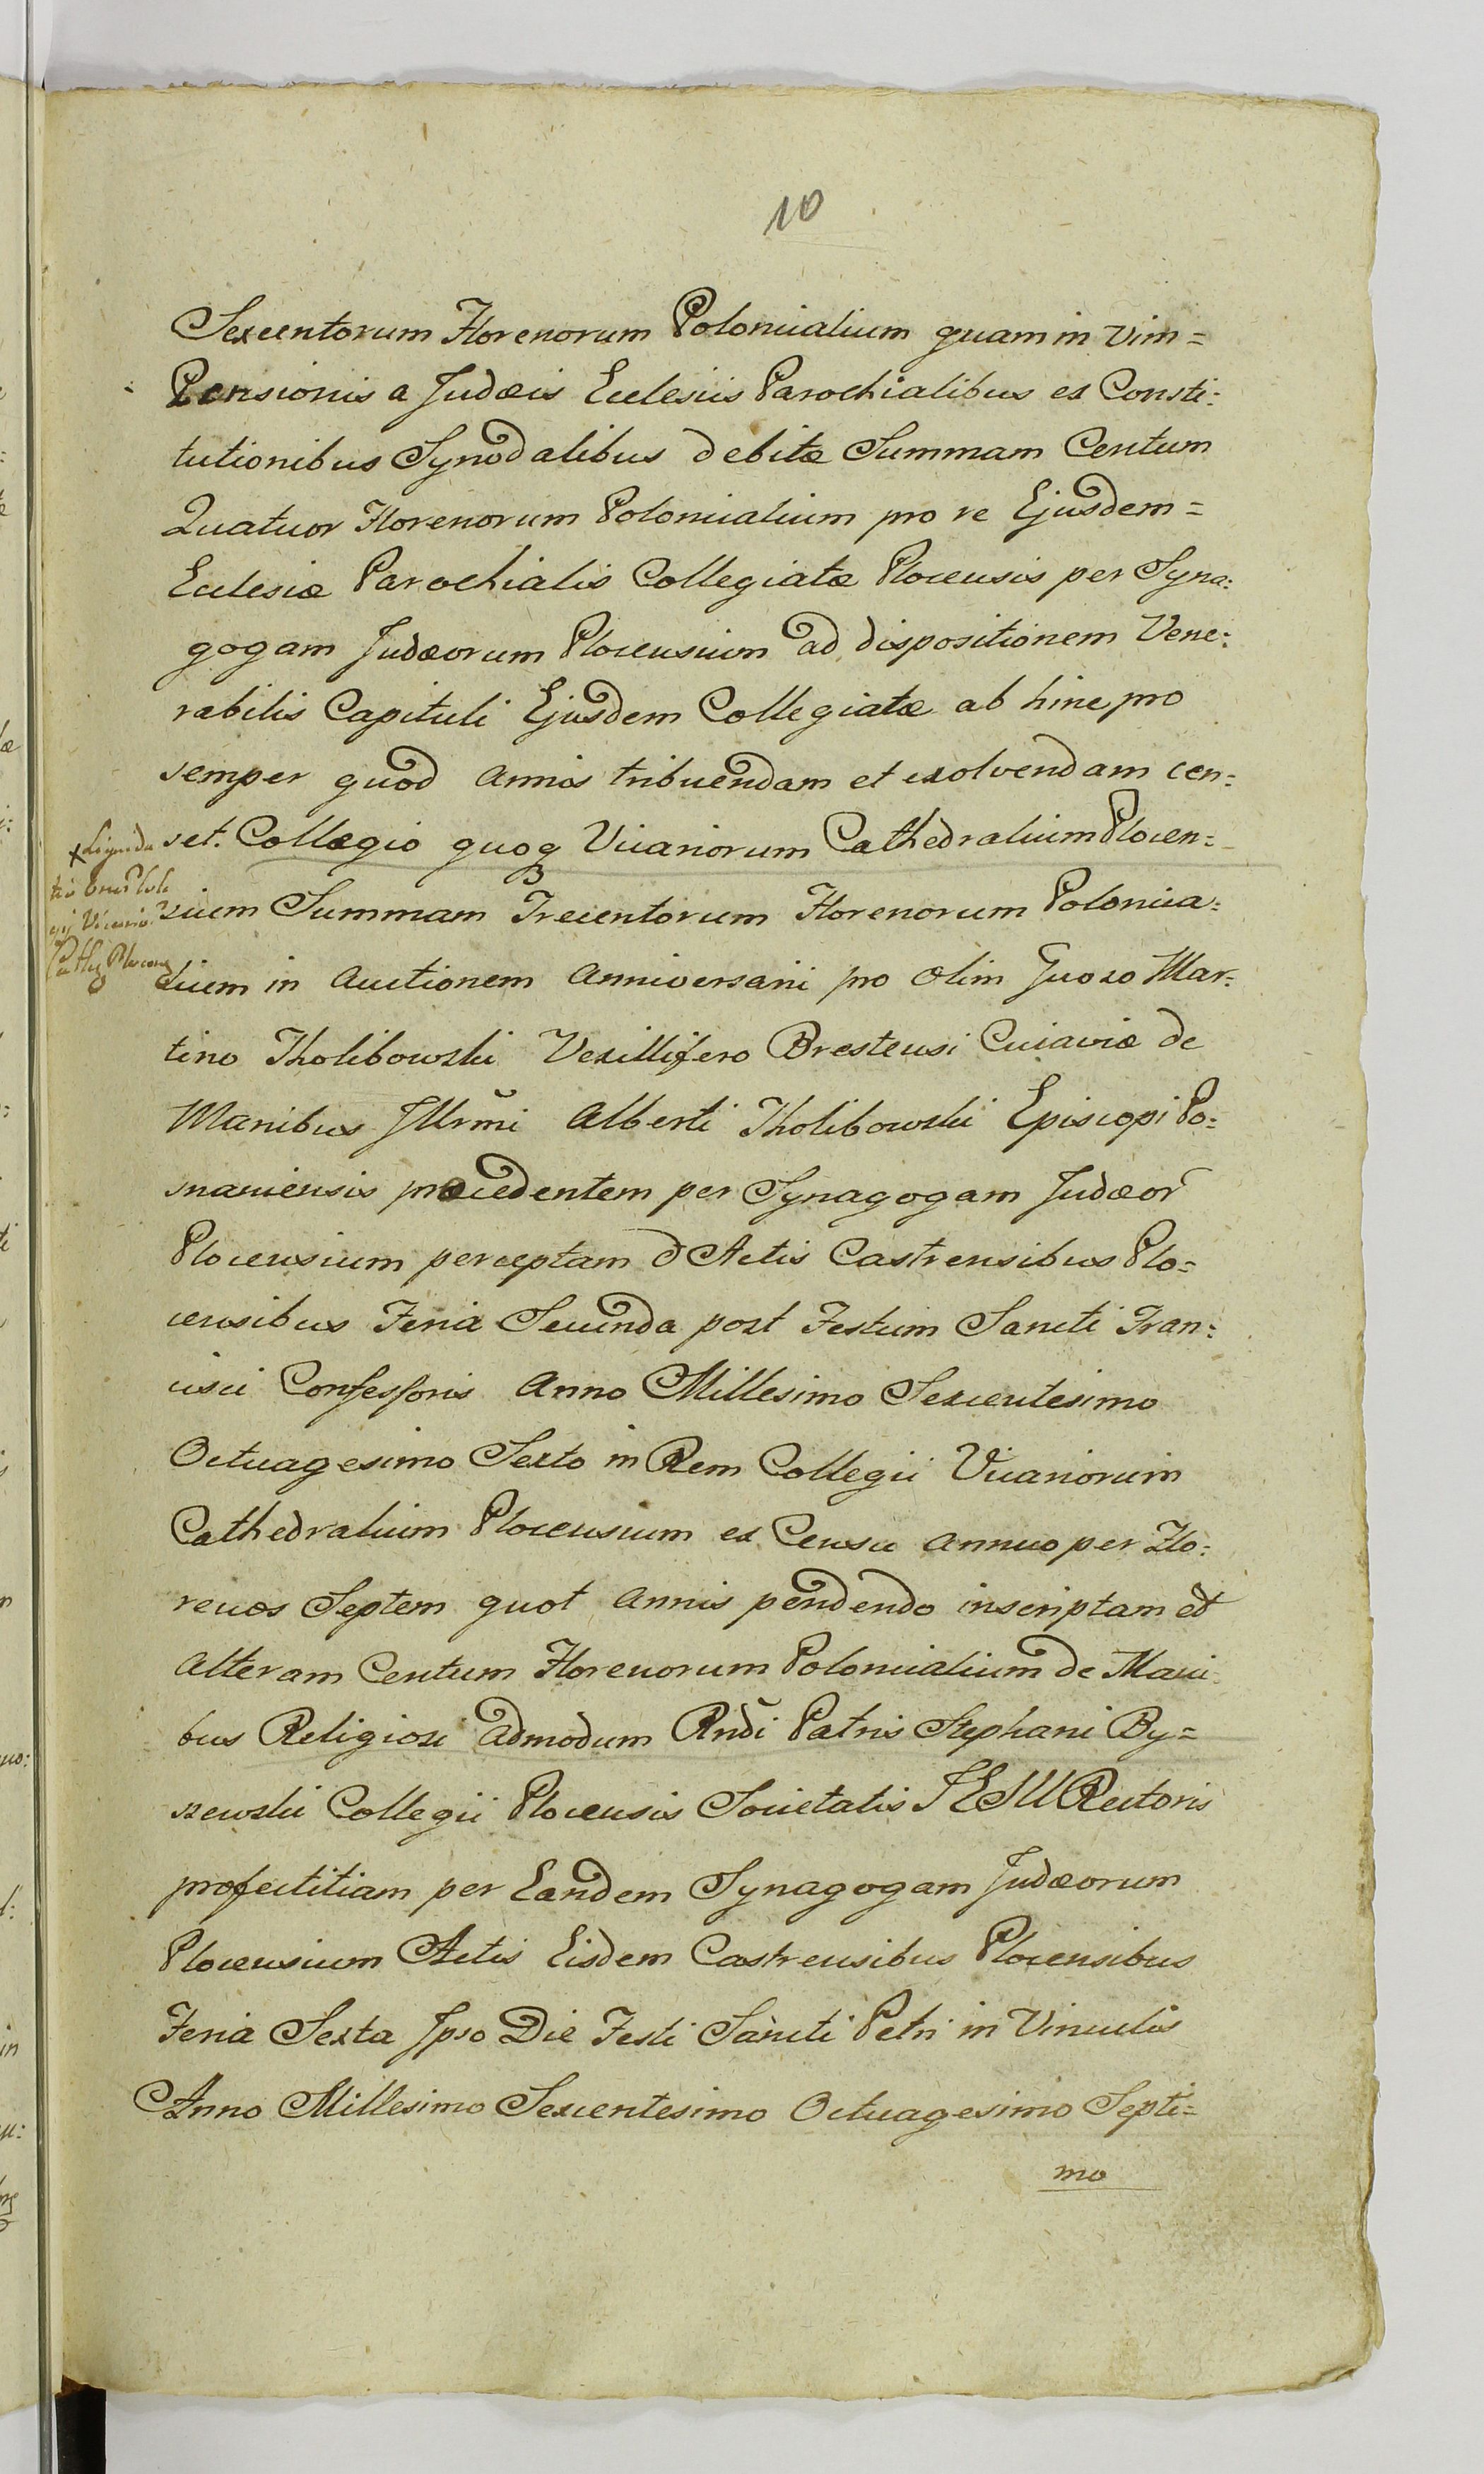 10
Sexcentorum Florenorum Polonicalium quam in vim=
Pensionis a Judæis Ecclesiis Parochialibus ex Consti:
tutionibus Synodalibus debitæ Summam Centum
Quatuor Florenorum Polonicalium pro re Ejusdem=
Ecclesiæ Parochialis Collegiatæ Plocensis per Syna:
gogam Judæorum Plocensium ad dispositionem Vene:
rabilis Capituli Ejusdem Collegiatæ ab hinc pro
semper quod annis tribuendam et exolvendam cen:
set. Collegio quoq Vicariorum Cathedralium Plocen:
sium Summam Trecentorum Florenorum Polonica:
lium in Auctionem Anniversarii pro olim Gnoso Mar:
tino Tholibowski Vexillifero Brestensi Cuiaviæ de
Manibus Illrmi Alberti Tholibowski Episcopi Po:
snaniensis præcedentem per Synagogam Judæor
Plocensium perceptam & Actis Castrensibus Plo=
censibus Feria Secunda post Festum Sancti Fran:
cisci Confessoris Anno Millesimo Sexcentesimo
Octuagesimo Sexto in Rem Collegii Vicariorum
Cathedralium Plocensium ex Censu annuo per Flo:
renos Septem quot annis pendendo inscriptam et
alteram Centum Florenorum Polonicalium de Mani
bus Religiosi admodum Rndi Patris Stephani By=
szewski Collegii Plocensis Societatis JESU Rectoris
profectitiam per Eandem Synagogam Judæorum
Plocensium Actis Eisdem Castrensibus Plocensibus
Feria Sexta Ipso Die Festi Sancti Petri in Vinculis
Anno Millesimo Sexcentesimo Octuagesimo Septi=
mo